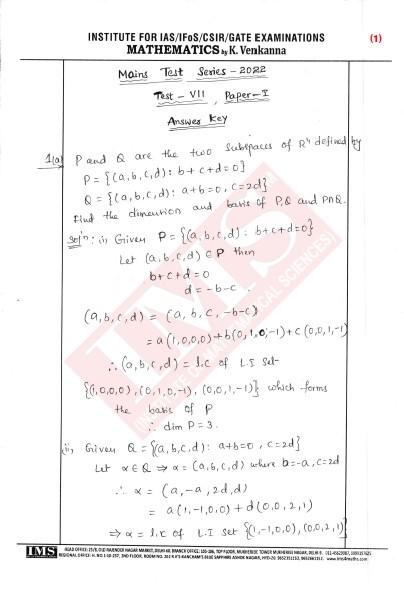 INSTITUTE FOR IAS/IFoS/CSIR/GATE EXAMINATIONS
MATHEMATICS by K. Venkanna
(1)
Mains Test Series - 2022
Test - VII, Paper - I
Answer Key
1(a) P and Q are the two subspaces of R⁴ defined by
P = {(a,b,c,d): b+c+d=0}
Q = {(a,b,c,d): a+b=0, c=2d}
Find the dimension and basis of P, Q and P∩Q.
Sol'n: i) Given P = {(a,b,c,d): b+c+d=0}
Let (a,b,c,d) ∈ P then
b+c+d=0
d=-b-c.
(a,b,c,d) = (a, b, c, -b-c)
= a(1,0,0,0) + b(0,1,0,-1) + c(0,0,1,-1)
∴ (a,b,c,d) = l.c of L.I Set
{(1,0,0,0), (0,1,0,-1), (0,0,1,-1)} which forms
the basis of P
∴ dim P = 3.
(ii) Given Q = {(a,b,c,d): a+b=0, c=2d}
Let α ∈ Q ⇒ α = (a,b,c,d) where b=-a, c=2d
∴ α = (a, -a, 2d, d)
= a(1,-1,0,0) + d(0,0,2,1)
⇒ α = l.c of L.I set {(1,-1,0,0), (0,0,2,1)}
IMS
(INSTITUTE OF MATHEMATICAL SCIENCES)
IMS
HEAD OFFICE: 25/8, OLD RAJENDER NAGAR MARKET, DELHI-60. BRANCH OFFICE: 105-106, TOP FLOOR, MUKHERJEE TOWER MUKHERJEE NAGAR, DELHI-9.
REGIONAL OFFICE: H. NO. 1-10-237, 2ND FLOOR, ROOM NO. 202 R.K'S-KANCHAM'S BLUE SAPPHIRE ASHOK NAGAR, HYD-20. 9652351152, 9652661152. www.ims4maths.com